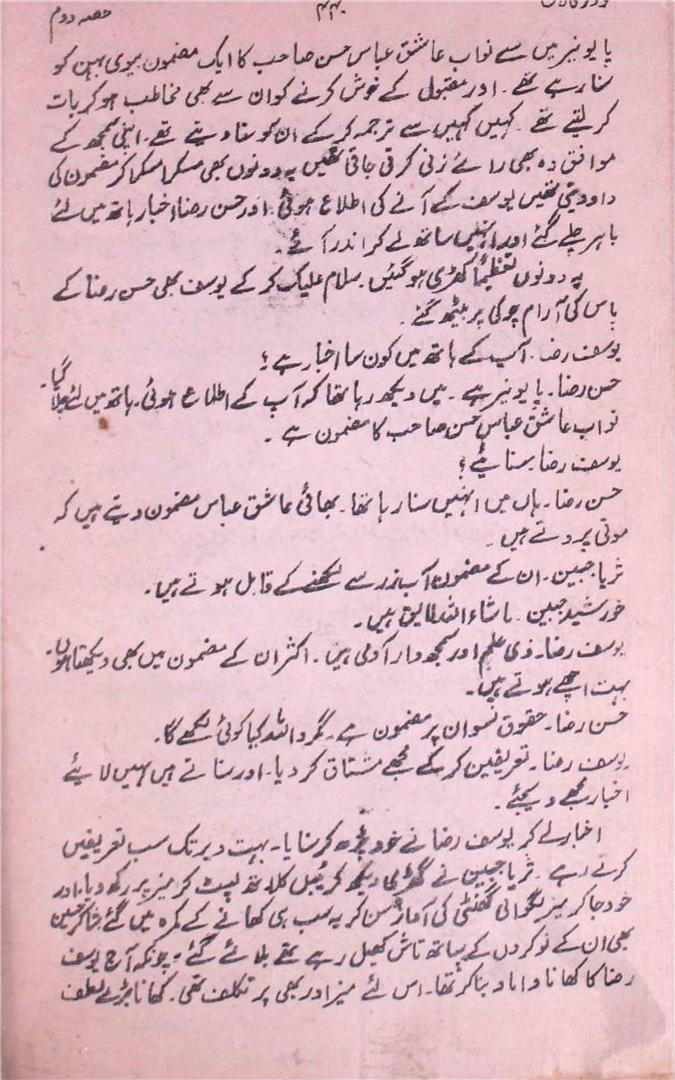 حصہ دوم ۴۴۰
پایونیر میں سے نواب عاشق عباس حسن صاحب کا ایک مضمون بیوی بہن کو
سنا رہے تھے۔ اور مقبول کے خوش کرنے کو ان سے بھی مخاطب ہو کر بات
کر لیتے تھے۔ کہیں کہیں سے ترجمہ کر کے ان کو سنا دیتے تھے۔ اپنی سمجھ کے
موافق وہ بھی رائے زنی کرتی جاتی تھیں یہ دونوں بھی مسکرا مسکرا کر مضمون کی
داد دیتی تھیں یوسف کے آنے کی اطلاع ہوئی۔ اور حسن رضا اخبار ہاتھ میں لئے
باہر چلے گئے اور انہیں ساتھ لے کر اندر آئے۔
یہ دونوں تعظیماً کھڑی ہو گئیں۔ سلام علیک کر کے یوسف بھی حسن رضا کے
پاس کی آرام چوکی پر بیٹھ گئے۔
یوسف رضا۔ آپ کے ہاتھ میں کون سا اخبار ہے؟
حسن رضا۔ پایونیر ہے۔ میں دیکھ رہا تھا کہ آپ کے اطلاع ہوئی۔ ہاتھ میں لئے چلا گیا۔
نواب عاشق عباس حسن صاحب کا مضمون ہے۔
یوسف رضا۔ سنائیے؟
حسن رضا۔ ہاں میں انہیں سنا رہا تھا۔ بھائی عاشق عباس مضمون دیتے ہیں کہ
موتی پروتے ہیں۔
ثریا جبین۔ ان کے مضمون آب زر سے لکھنے کے قابل ہوتے ہیں۔
خورشید جبین۔ ماشاء اللہ لایق ہیں۔
یوسف رضا۔ ذی علم اور سمجھ دار آدمی ہیں۔ اکثر ان کے مضمون میں بھی دیکھتا ہوں۔
بہت اچھے ہوتے ہیں۔
حسن رضا۔ حقوق نسواں پر مضمون ہے۔ مگر واللہ کیا کوئی لکھے گا۔
یوسف رضا۔ تعریفین کر کے مجھے مشتاق کر دیا۔ اور سناتے ہیں نہیں لایئے
اخبار مجھے دیجئے۔
اخبار لے کر یوسف رضا نے خود پڑھ کر سنایا۔ بہت دیر تک سب تعریفیں
کرتے رہے۔ ثریا جبین نے گھڑی دیکھ کر ٹیبل کلاتھ لپیٹ کر میز پر رکھ دیا۔ اور
خود جا کر میز لگوائی گھنٹی کی آواز سن کر یہ سب ہی کھانے کے کمرہ میں گئے شاکر حسین
بھی ان کے نوکروں کے ساتھ تاش کھیل رہے تھے بلائے گئے۔ چونکہ آج یوسف
رضا کا کھانا داماد بنا کر تھا۔ اس لئے میز اور بھی پر تکلف تھی۔ کھانا بڑے لطف